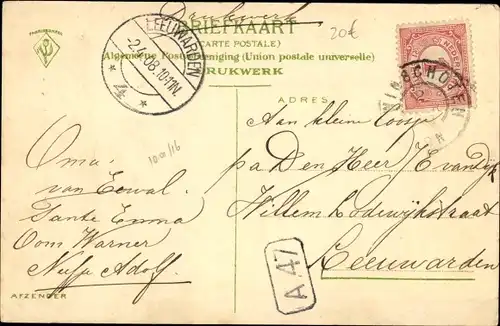 BRIEFKAART
(CARTE POSTALE)
Algemeene Postvereeniging (Union postale universelle)
DRUKWERK
20€
LEEUWARDEN
2.4.08.10-11N.
WINSCHOTEN
ADRES
Aan kleine
p/a Den Heer E van Dijk
Willem Lodewijkstraat
Leeuwarden
10∞/16
Oma
van Eewal.
Tante Emma
Oom Warner
Adolf.
AFZENDER
A.47